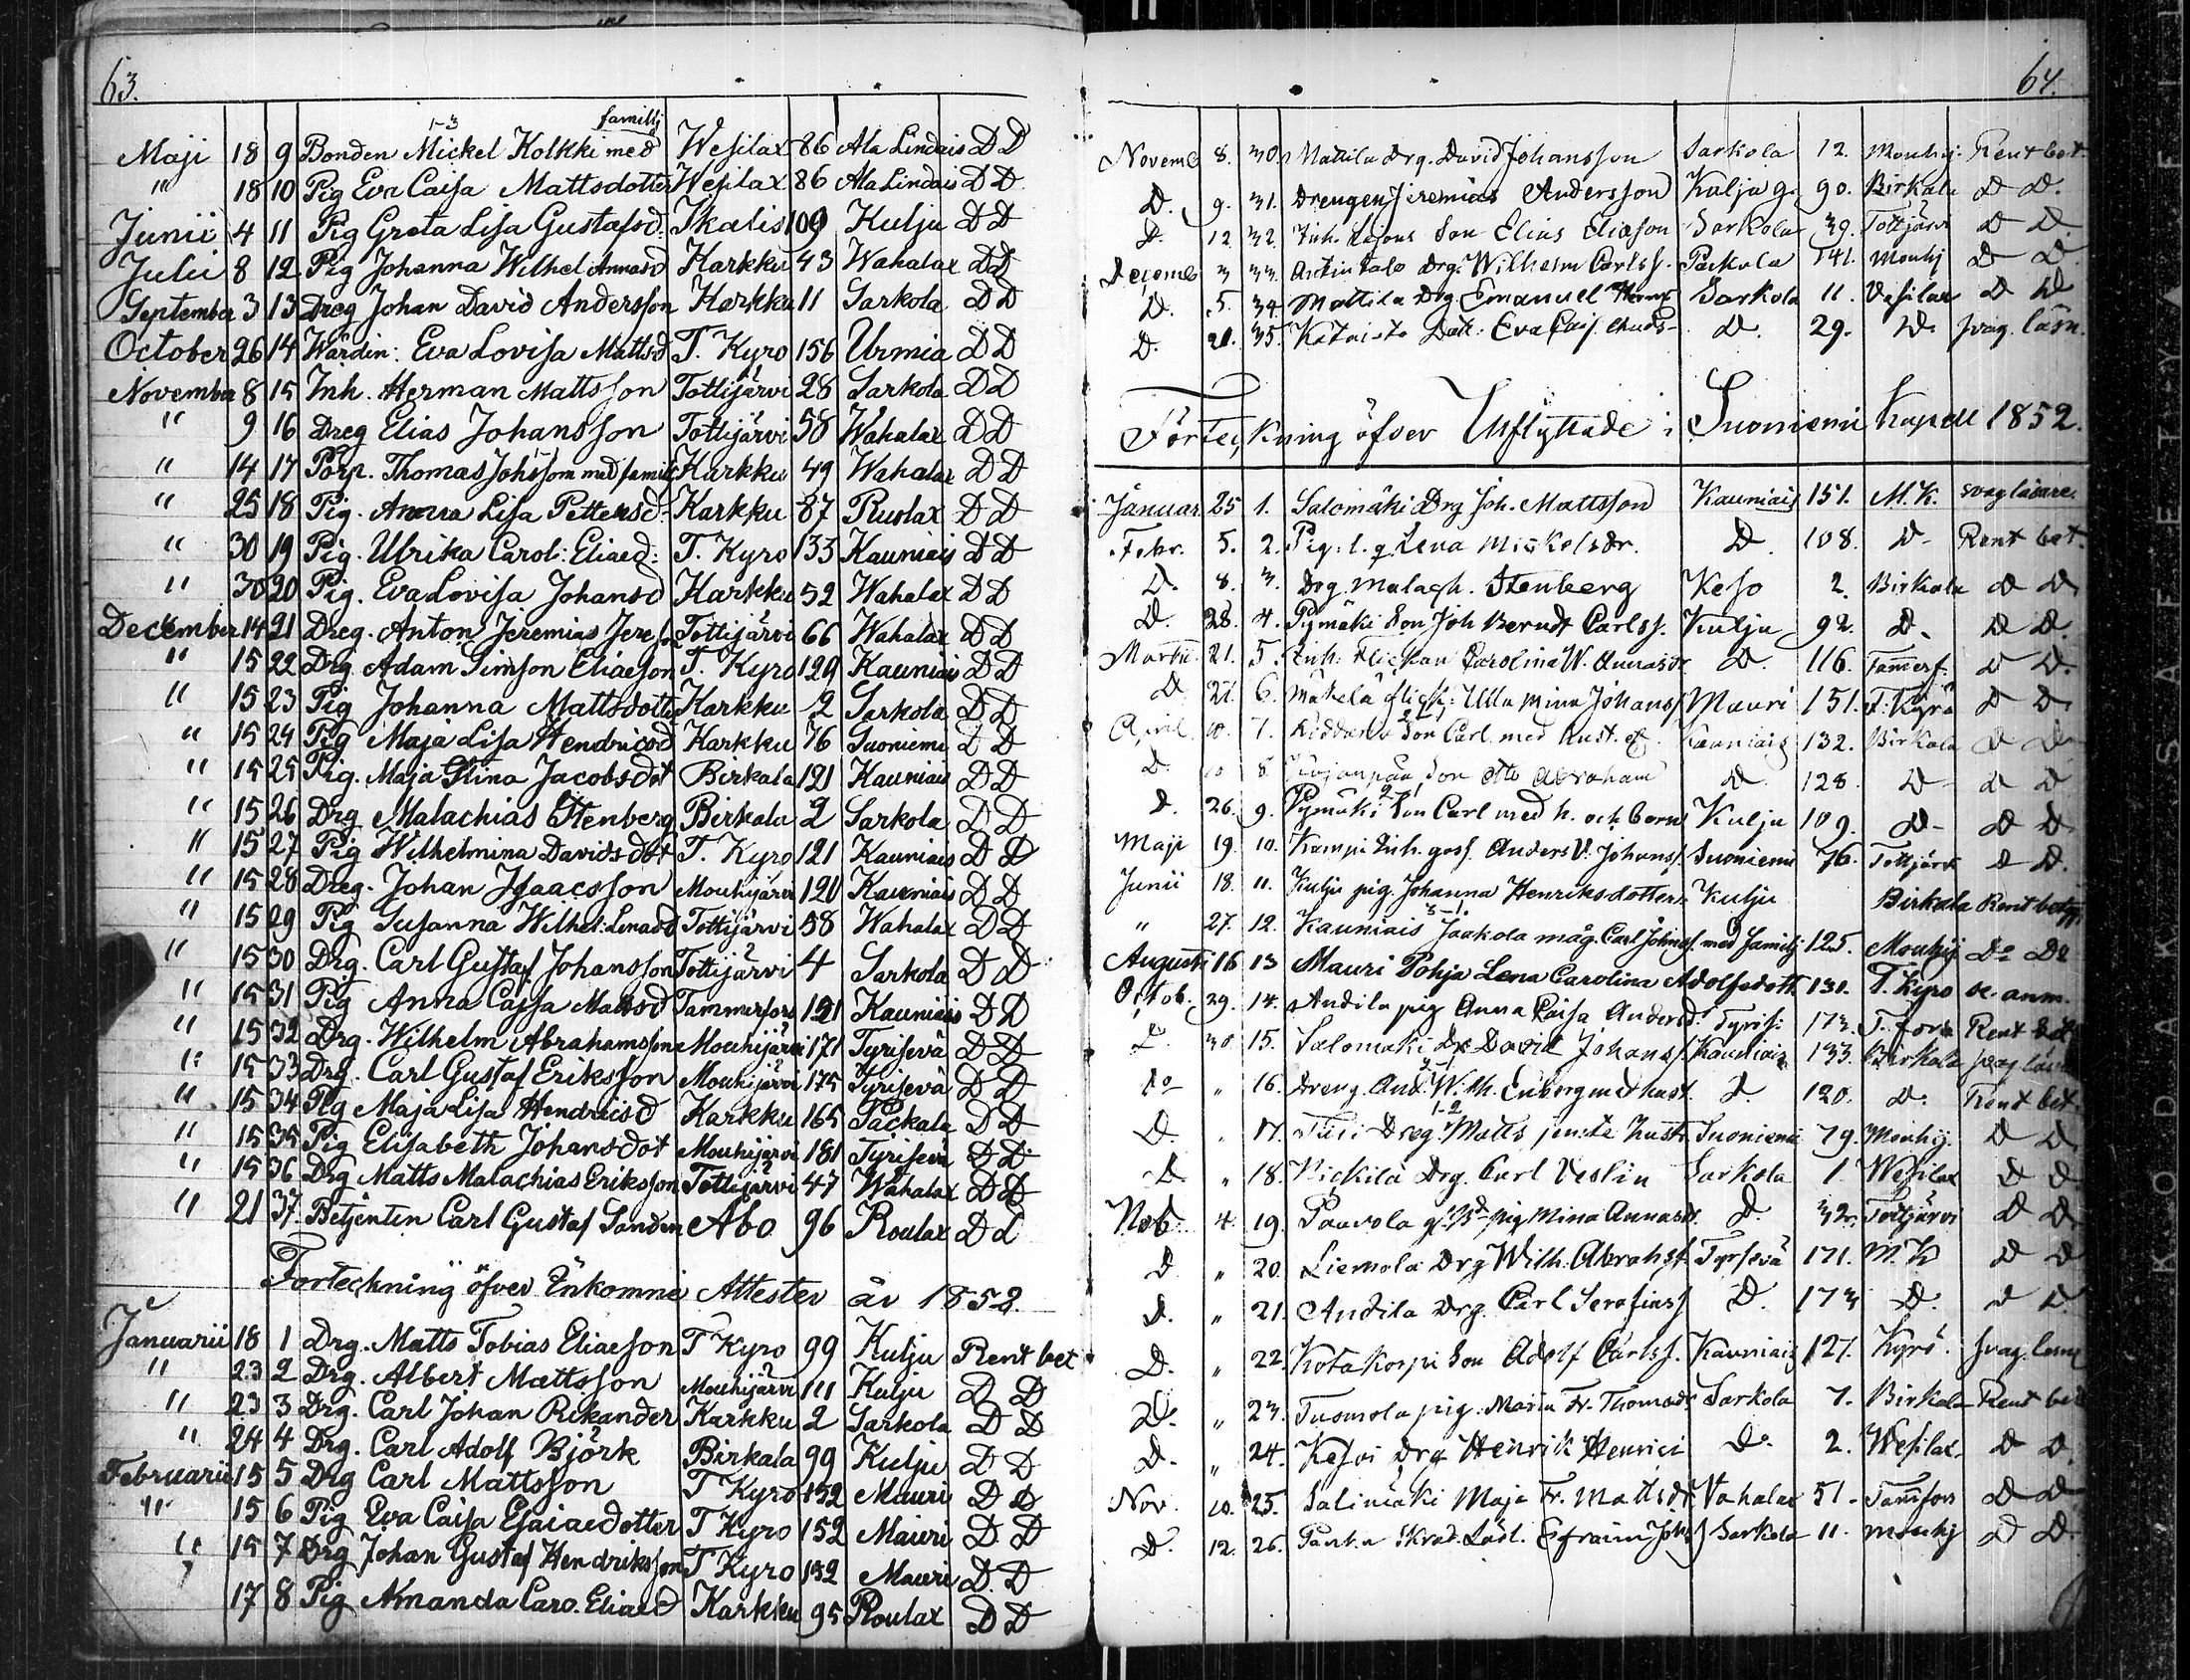 63.
Maji 18 9 Bonden Mickel Kolkki med familj 1-3 Wesilax 86 Ala Lindais D D
" 18 10 Pig Eva Caisa Mattsdotter Wesilax 86 Ala Lindais D D
Junii 4 11 Pig Greta Lisa Gustafsd. Ikalis 109 Kulju D D
Julii 8 12 Pig Johanna Wilhel Annasd Karkku 43 Wahalax D D
September 3 13 Dreg Johan David Andersson Karkku 11 Sarkola D D
October 26 14 Wärdin: Eva Lovisa Mattsd T. Kyro 156 Urmia D D
November 8 15 Inh. Herman Mattsson Tottijärvi 28 Sarkola D D
" 9 16 Dreg Elias Johansson Tottijärvi 58 Wahalax D D
" 14 17 Porp. Thomas Johsson med familj Karkku 49 Wahalax D D
" 25 18 Pig. Anna Lisa Pettersd: Karkku 87 Ruolax D D
" 30 19 Pig. Ulrika Carol: Eliaed: T. Kyro 133 Kauniais D D
" 30 20 Pig. Eva Lovisa Johansd Karkku 52 Wahalax D D
December 14 21 Dreg. Anton Jeremias Jeres Tottijärvi 66 Wahalax D D
" 15 22 Drg Adam Simson Eliaeson T. Kyro 129 Kauniais D D
" 15 23 Pig Johanna Mattsdotter Karkku 2 Sarkola D D
" 15 24 Pig Maja Lisa Hendricsd Karkku 76 Suoniemi D D
" 15 25 Pig. Maja Stina Jacobsdot Birkala 121 Kauniais D D
" 15 26 Drg Malachias Stenberg Birkala 2 Sarkola D D
" 15 27 Pig Wilhelmina Davidsdot T. Kyro 121 Kauniais D D
" 15 28 Dreg. Johan Isaacsson Mouhijärvi 120 Kauniais D D
" 15 29 Pig Susanna Wilhel: Lenasd Tottijärvi 58 Wahalax D D
" 15 30 Drg. Carl Gustaf Johansson Tottijärvi 4 Sarkola D D
" 15 31 Pig Anna Caisa Mattsd Tammerfors 121 Kauniais D D
" 15 32 Drg. Wilhelm Abrahamsson Mouhijärvi 171 Tyrisevä D D
" 15 33 Drg. Carl Gustaf Eriksson Mouhijärvi 175 Tyrisevä D D
" 15 34 Pig Maja Lisa Hendricsd Karkku 165 Packala D D
" 15 35 Pig Elisabeth Johansdot Mouhijärvi 181 Tyrisevä D D
" 15 36 Drg Matts Malachias Eriksson Tottijärvi 47 Wahalax D D
" 21 37 Betjenten Carl Gustaf Sanden Abo 96 Roulax D D
Forteckning öfver Inkomne Attester år 1852.
Januarii 18 1 Drg. Matts Tobias Eliaeson T Kyro 99 Kulju Rent bet
" 23 2 Drg. Albert Mattsson Mouhijärvi 111 Kulju D D
" 23 3 Drg. Carl Johan Rekander Karkku 2 Sarkola D D
" 24 4 Drg. Carl Adolf Björk Birkala 99 Kulju D D
Februarii 15 5 Drg Carl Mattsson T Kyro 152 Mauri D D
" 15 6 Pig Eva Caisa Esaiaedotter T Kyro 152 Mauri D D
" 15 7 Drg Johan Gustaf Hendriksson T Kyro 152 Mauri D. D
" 17 8 Pig Amanda Caro. Eliaed Karkku 95 Roulax D D
64.
Novemb 8. 30. Mattila Drg. David Johansson Sarkola 12. Mouhij. Rent bet.
D. 9. 31. Drengen Jeremias Andersson Kulju g. 90. Birkala D D.
D. 12. 32. Inh. Son Elias Eliason Sarkola 39. Tottjärv D D.
Decemb 3 33. Drg. Wilhelm Carlss. Packala 141. Mouhij D D
D. 5. 34. Mattila Drg Emanuel Sarkola 11. Vesilax D D
D. 21. 35. Katvisto Dott: Eva Cais. D. 29. D. svag. läsn.
Förteckning öfver Utflyttade i Suoniemi Kapell 1852.
Januar. 25 1. Salomäki Drg Joh. Mattsson Kauniais 151. M. K. svag läsare.
Febr. 5. 2. Pig: Lena Mickelsdr. D. 108. D. Rent bet.
D. 8. 3. Drg. Malach. Stenberg Keso 2. Birkala D D
D. 28. 4. Pymäki Son Joh Berndt Carlss. Kulju 92. D. D D.
Martii 21. 5. Inh: flickan Carolina W. Annasd D. 116. Tamerf. D D.
D. 27. 6. Mäkelä flick: Ulla Mina Johans Mauri 151. T. Kyrö D D
April 10. 7. Son Carl med hust. Kauniais 132. Birkala D D
D. 10 8. Son Otto Abraham D. 128. D D D
D. 26. 9. Pymäki Son Carl med h. och barn Kulju 109. D D D
Maji 19. 10. Kampi Inh. goss. Anders V. Johans. Suoniemi 76. Tottjärv D D.
Junii 18. 11. Kulju pig. Johanna Henriksdotter Kulju Birkala Rent
" 27. 12. Kauniais Jaakola måg. Carl Johns. med familj 125. Mouhij Do Do
Augusti 16 13 Mauri Pohja Lena Carolina Adolfsdott. 130. T. Kyro se. anm.
Octob. 29. 14. Andila pig Anna Caisa Andersd. Tyris: 173. T. fors Rent bet
D. 30. 15. Salomäki Dr. David Johans. Kauniais 133. Birkala svag läsn
Do " 16. Dreng. And. W. Enberg med hust. D. 120. D. Rent bet.
D. " 17. Dreg. Matts jemte hustr 1-2 Suoniemi 79. Mouhij. D D
D " 18. Drg. Carl Veslin Sarkola 1. Wesilax D D
Nob. 4. 19. Paavola pig Mina Annasd. D. 32. Tottjärvi D D
D " 20. Liemola Drg Wilh. Abrahss. Tyrsevä 171. M. D D
D. " 21. Andila Drg. Carl Serafinss D. 173 D. D D
D. " 22. Kotakorpi Son Adolf Carlss. Kauniais 127. Kyrö. svag. läsn
D. " 23. Tuomola pig. Maria Fr. Thomasd Sarkola 7. Birkala Rent bet
D. " 24. Kesoi Drg Henrik Henrici D. 2. Wesilax D D.
Nov. 10. 25. Salimäki Maja Fr. Mattsdr. Vahalax 51. Tamfors D D
D. 12. 26. Skräd. Lärl. Efraim Johs Sarkola 11. Mouhij D D.
KODAK SAFETY